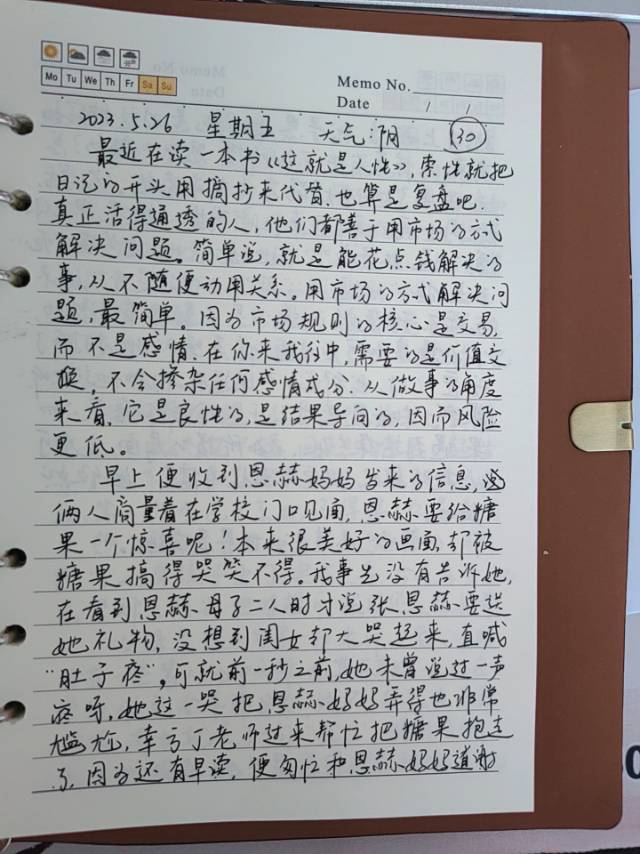 Mo Tu We Th Fr Sa Su
Memo No.
Date / /
2023.5.26 星期五 天气:阴 30
最近在读一本书《这就是人性》,索性就把
日记的开头用摘抄来代替,也算是复盘吧.
真正活得通透的人,他们都善于用市场的方式
解决问题。简单说,就是能花点钱解决的
事,从不随便动用关系。用市场的方式解决问
题,最简单。因为市场规则的核心是交易,
而不是感情.在你来我往中,需要的是价值交
换,不会掺杂任何感情成分.从做事的角度
来看,它是良性的,是结果导向的,因而风险
更低。
早上便收到恩赫妈妈发来的信息,这
俩人商量着在学校门口见面,恩赫要给糖
果一个惊喜呢!本来很美好的画面,却被
糖果搞得哭笑不得。我事先没有告诉她,
在看到恩赫母子二人时才说张恩赫要送
她礼物,没想到闺女却大哭起来,直喊
"肚子疼",可就前一秒之前,她未曾说过一声
疼呀,她这一哭把恩赫妈妈弄得也非常
尴尬,幸亏丁老师过来帮忙把糖果抱走
了,因为还有早读,便匆忙和恩赫妈妈道谢